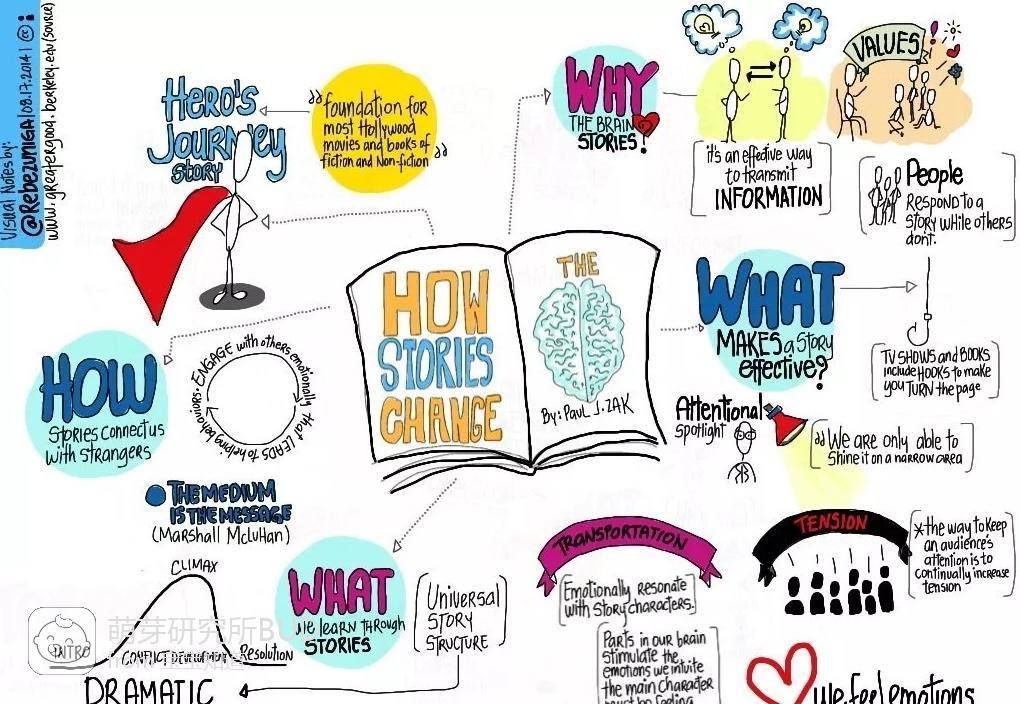 Visual Notes by:
@Rebezuniga | 09.17.2014 |
www.greatergood.berkeley.edu (source)
Hero's
Journey
Story
foundation for
most Hollywood
movies and books of
fiction and Non-fiction
WHY
THE BRAIN
STORIES!
it's an effective way
to transmit
INFORMATION
VALUES
People
Respond to a
Story while others
dont.
HOW
STORIES
CHANGE
THE
By: Paul J. ZAK
WHAT
MAKES a Story
effective?
TV SHOWS and BOOKS
include HOOKS to make
you TURN the page
Attentional
Spotlight
We are only able to
Shine it on a narrow area
HOW
Stories connect us
with Strangers
ENGAGE with others emotionally that LEADS to helping behaviors
THE MEDIUM
IS THE MESSAGE
(Marshall McLuhan)
WHAT
we learn through
STORIES
Universal
Story
Structure
CLIMAX
INTRO
CONFLICT DEVELOPMENT
Resolution
DRAMATIC
TRANSPORTATION
Emotionally resonate
with Story characters.
Parts in our brain
stimulate the
emotions we intuite
the main character
must be feeling
TENSION
*the way to keep
an audience's
attention is to
continually increase
tension
we feel emotions
萌芽研究所BU